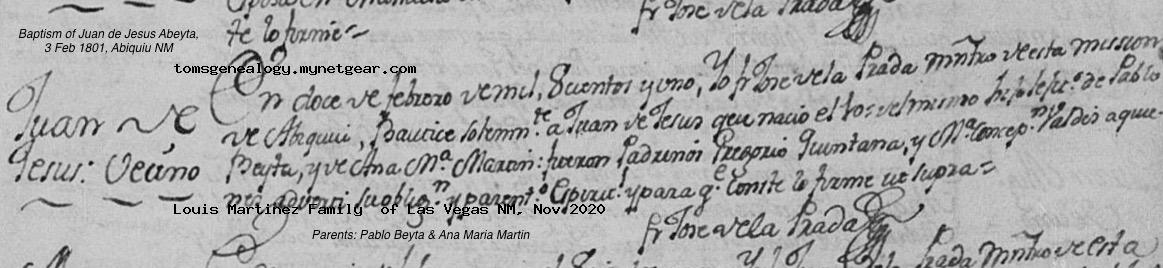 fr Jose de la Prada
te lo firme
Baptism of Juan de Jesus Abeyta,
3 Feb 1801, Abiquiu NM
tomsgenealogy.mynetgear.com
Juan de
Jesus: Vecino
En doce de febrero de mil, 8cientos y uno, Yo fr Jose de la Prada Mñtro de esta mission
de Abiquiu, Bautice solemn.te a Juan de Jesus que nacio el del mismo hijo de Pablo
Beyta, y de Ana M.a Martin: fueron Padrinos Gregorio Quintana, y M.a Concep.n Valdes a quie-
nes adverti su oblig.n y parent.o Espirit.l y para q.e Conste lo firme ut supra
Louis Martinez Family of Las Vegas NM, Nov.2020
fr Jose de la Prada
Parents: Pablo Beyta & Ana Maria Martin
Prada Mñtro de esta